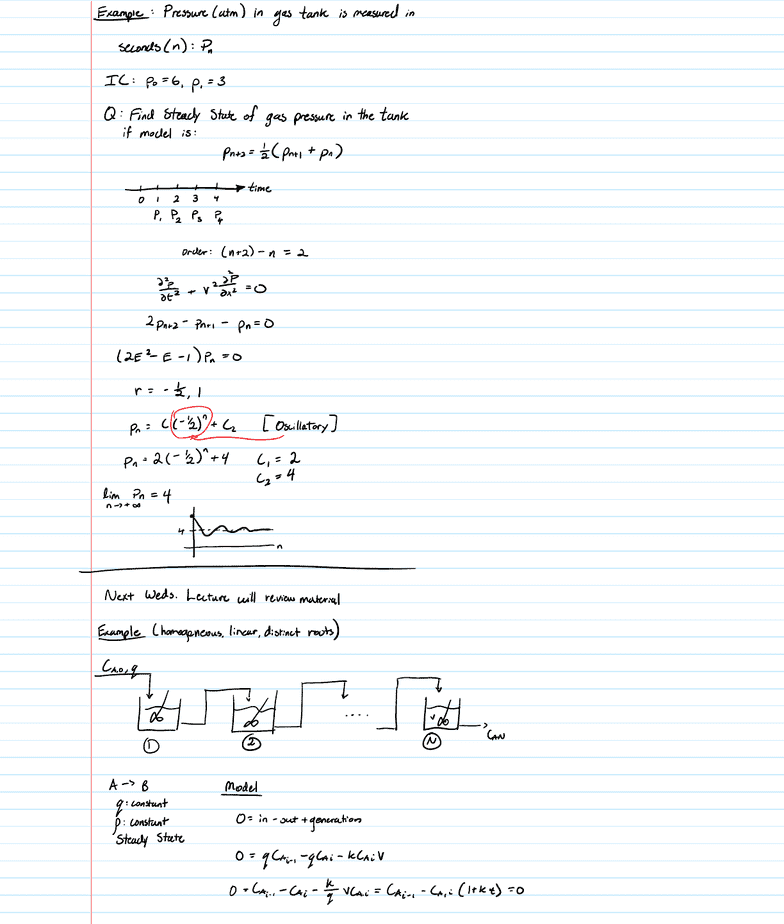 Example: Pressure (atm) in gas tank is measured in
seconds (n): Pn
IC: p0 = 6, p1 = 3
Q: Find Steady State of gas pressure in the tank
if model is:
pn+2 = 1/2 (pn+1 + pn)
time
0 1 2 3 4
P1 P2 P3 P4
order: (n+2) - n = 2
∂²p/∂t² + v² ∂²p/∂x² = 0
2pn+2 - pn+1 - pn = 0
(2E² - E - 1) Pn = 0
r = -1/2, 1
pn = C(-1/2)^n + C2 [Oscillatory]
pn = 2(-1/2)^n + 4 C1 = 2
C2 = 4
lim Pn = 4
n→+∞
4
n
Next Weds. Lecture will review material
Example (homogeneous, linear, distinct roots)
CA,0, q
....
v
CAN
1 2 N
A → B Model
q: constant
ρ: constant 0 = in - out + generation
Steady State
0 = qCAi-1 - qCAi - kCAiV
0 = CAi-1 - CAi - k/q VCAi = CAi-1 - CAi (1+kτ) = 0